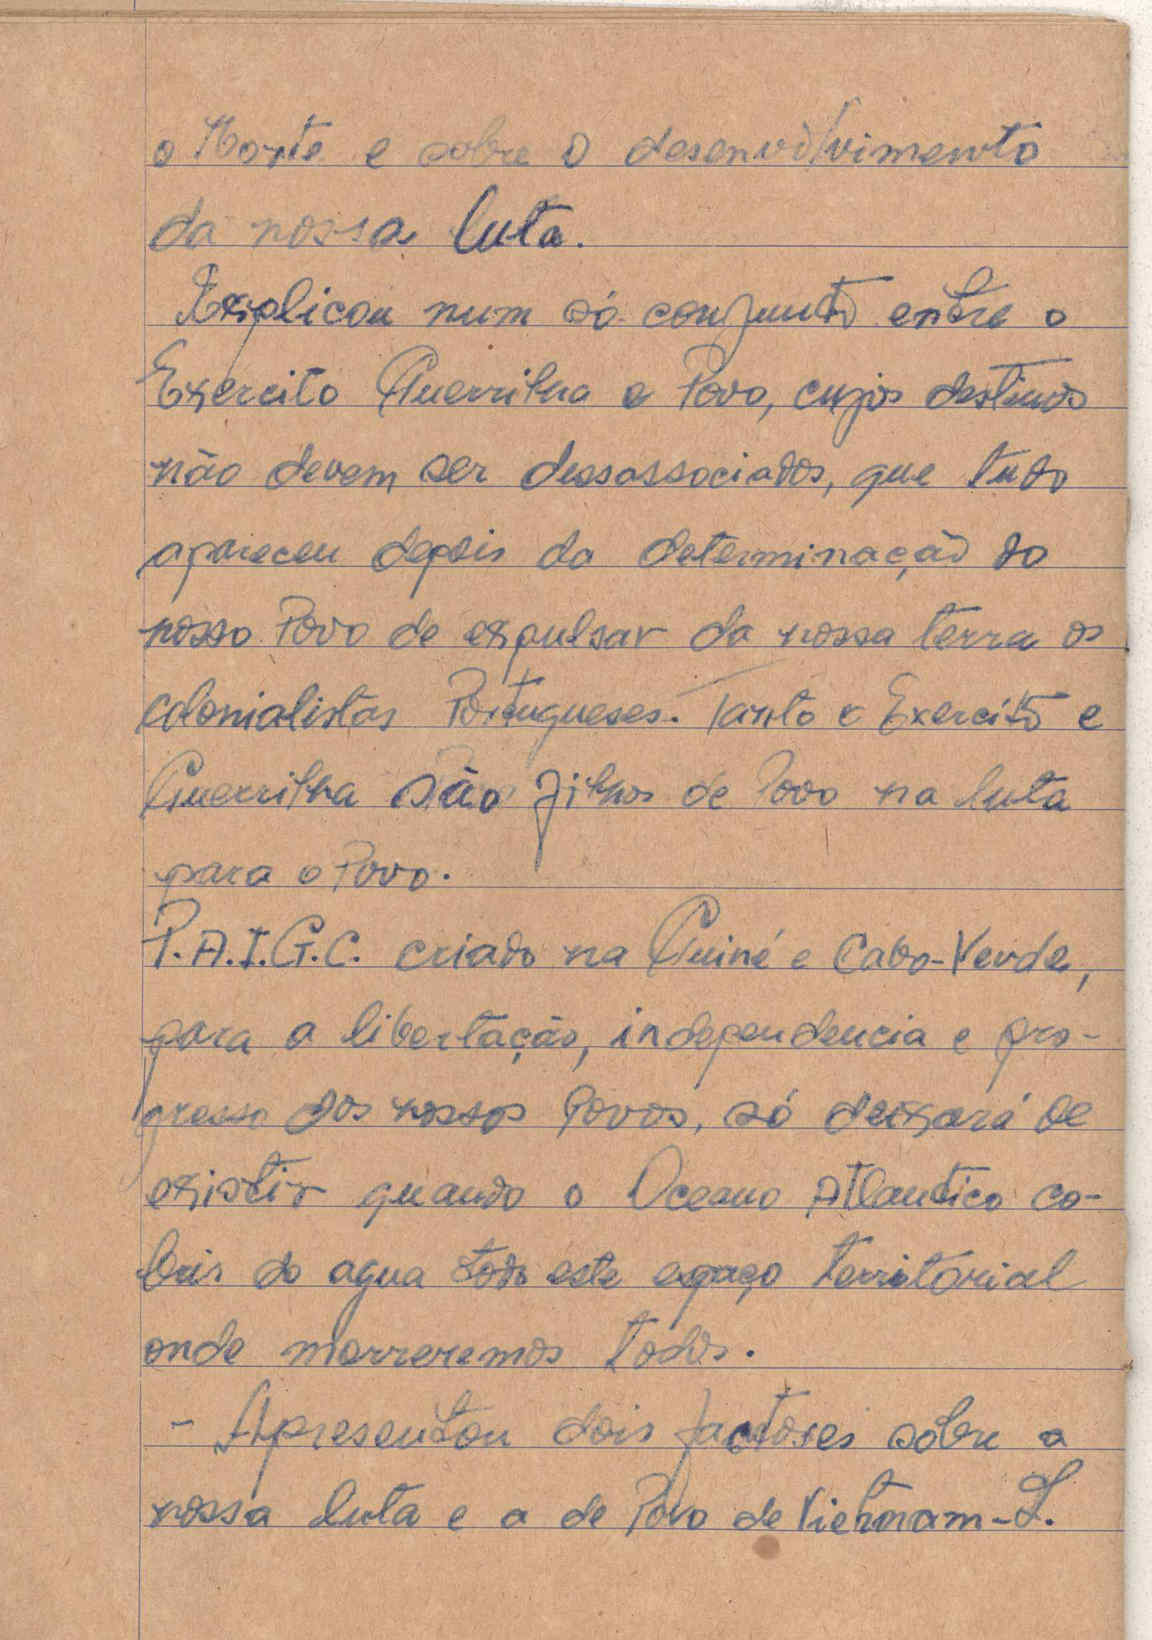 o Norte e sobre o desenvolvimento
da nossa luta.
Explicou num só conjunto entre o
Exercito Guerrilha e Povo, cujos destinos
não devem ser dessassociados, que tudo
apareceu depois da determinação do
nosso Povo de expulsar da nossa terra os
colonialistas Portugueses. Tanto o Exercito e
Guerrilha são filhos de Povo na luta
para o Povo.
P.A.I.G.C. criado na Guiné e Cabo-Verde,
para a libertação, independencia e pro-
gresso dos nossos Povos, só deixará de
existir quando o Oceano Atlantico co-
bris do agua todo este espaço territorial
onde morreremos todos.
- Apresentou dois factores sobre a
nossa luta e a de Povo de Vietnam-S.